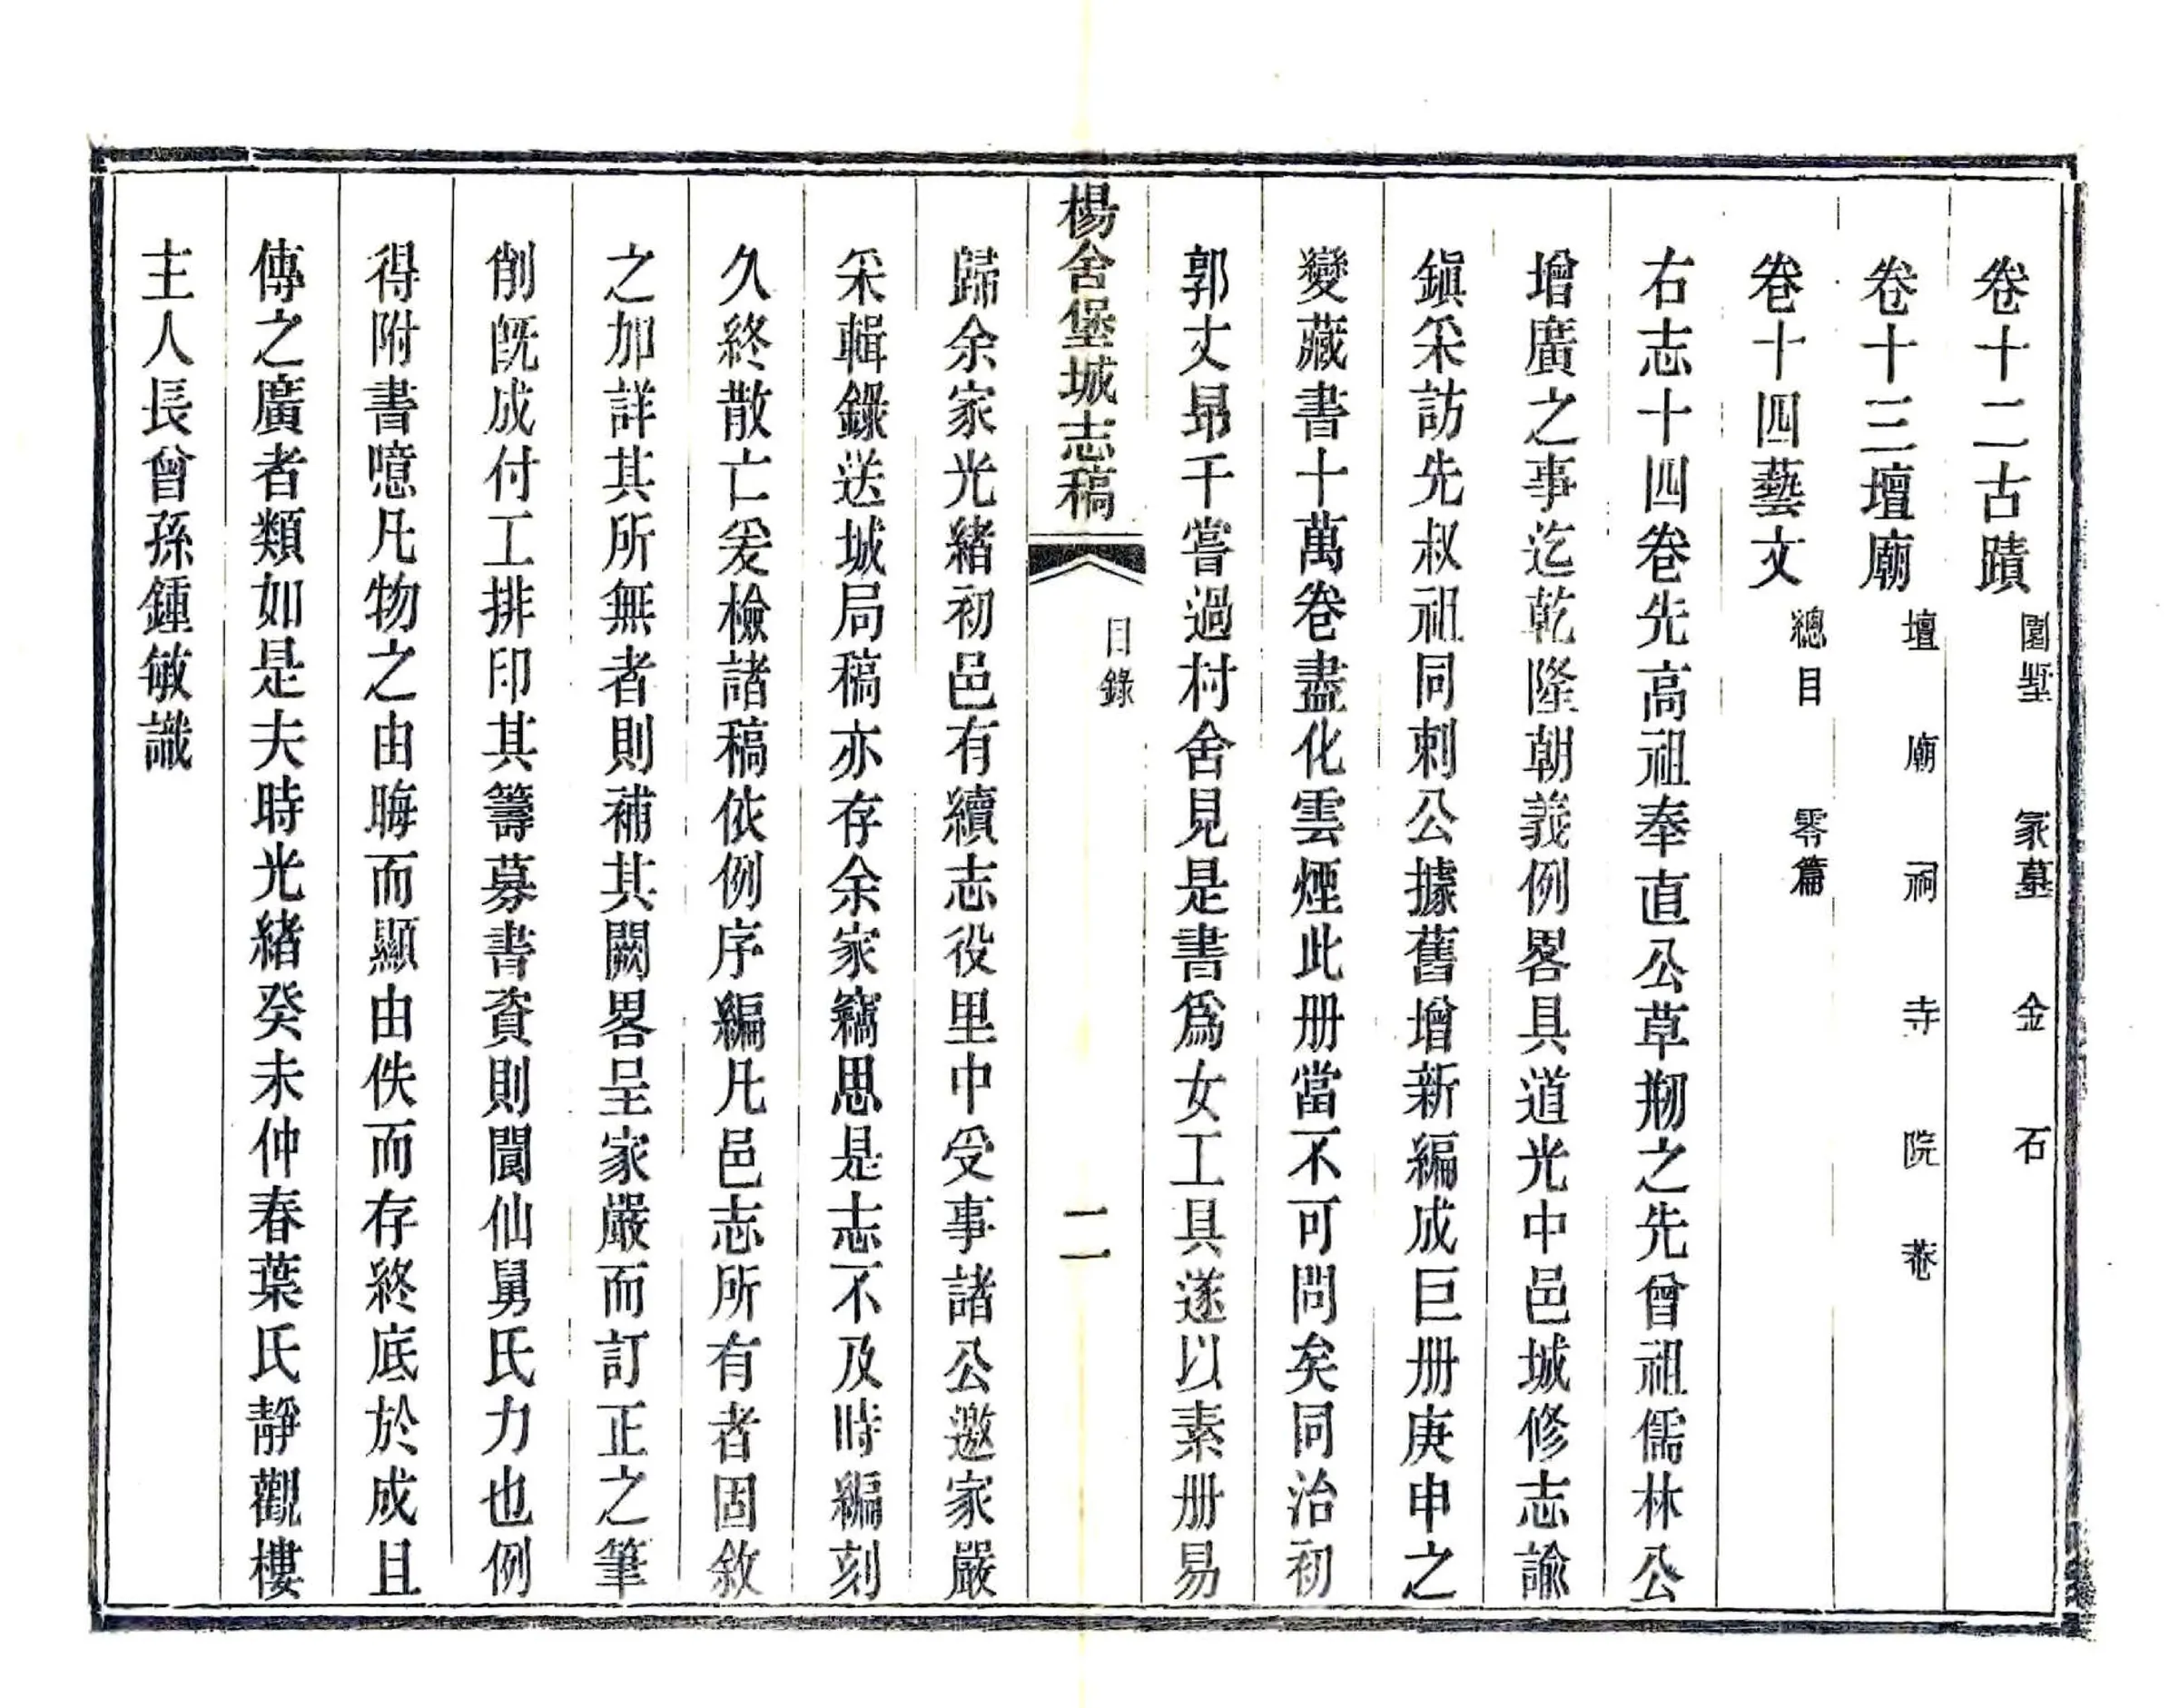 卷十二古蹟 園墅 冢墓 金石
卷十三壇廟 壇 廟 祠 寺 院 菴
卷十四藝文 總目 零篇
右志十四卷先高祖奉直公草剏之先曾祖儒林公
增廣之事迄乾隆朝義例畧具道光中邑城修志諭
鎭采訪先叔祖同刺公據舊增新編成巨册庚申之
變藏書十萬卷盡化雲煙此册當不可問矣同治初
郭丈昻千嘗過村舍見是書爲女工具遂以素册易
楊舍堡城志稿 目錄 二
歸余家光緒初邑有續志役里中受事諸公邀家嚴
采輯錄送城局稿亦存余家竊思是志不及時編刻
久終散亡爰檢諸稿依例序編凡邑志所有者固敘
之加詳其所無者則補其闕畧呈家嚴而訂正之筆
削旣成付工排印其籌募書資則聞仙舅氏力也例
得附書噫凡物之由晦而顯由佚而存終底於成且
傳之廣者類如是夫時光緒癸未仲春葉氏靜觀樓
主人長曾孫鍾敏識